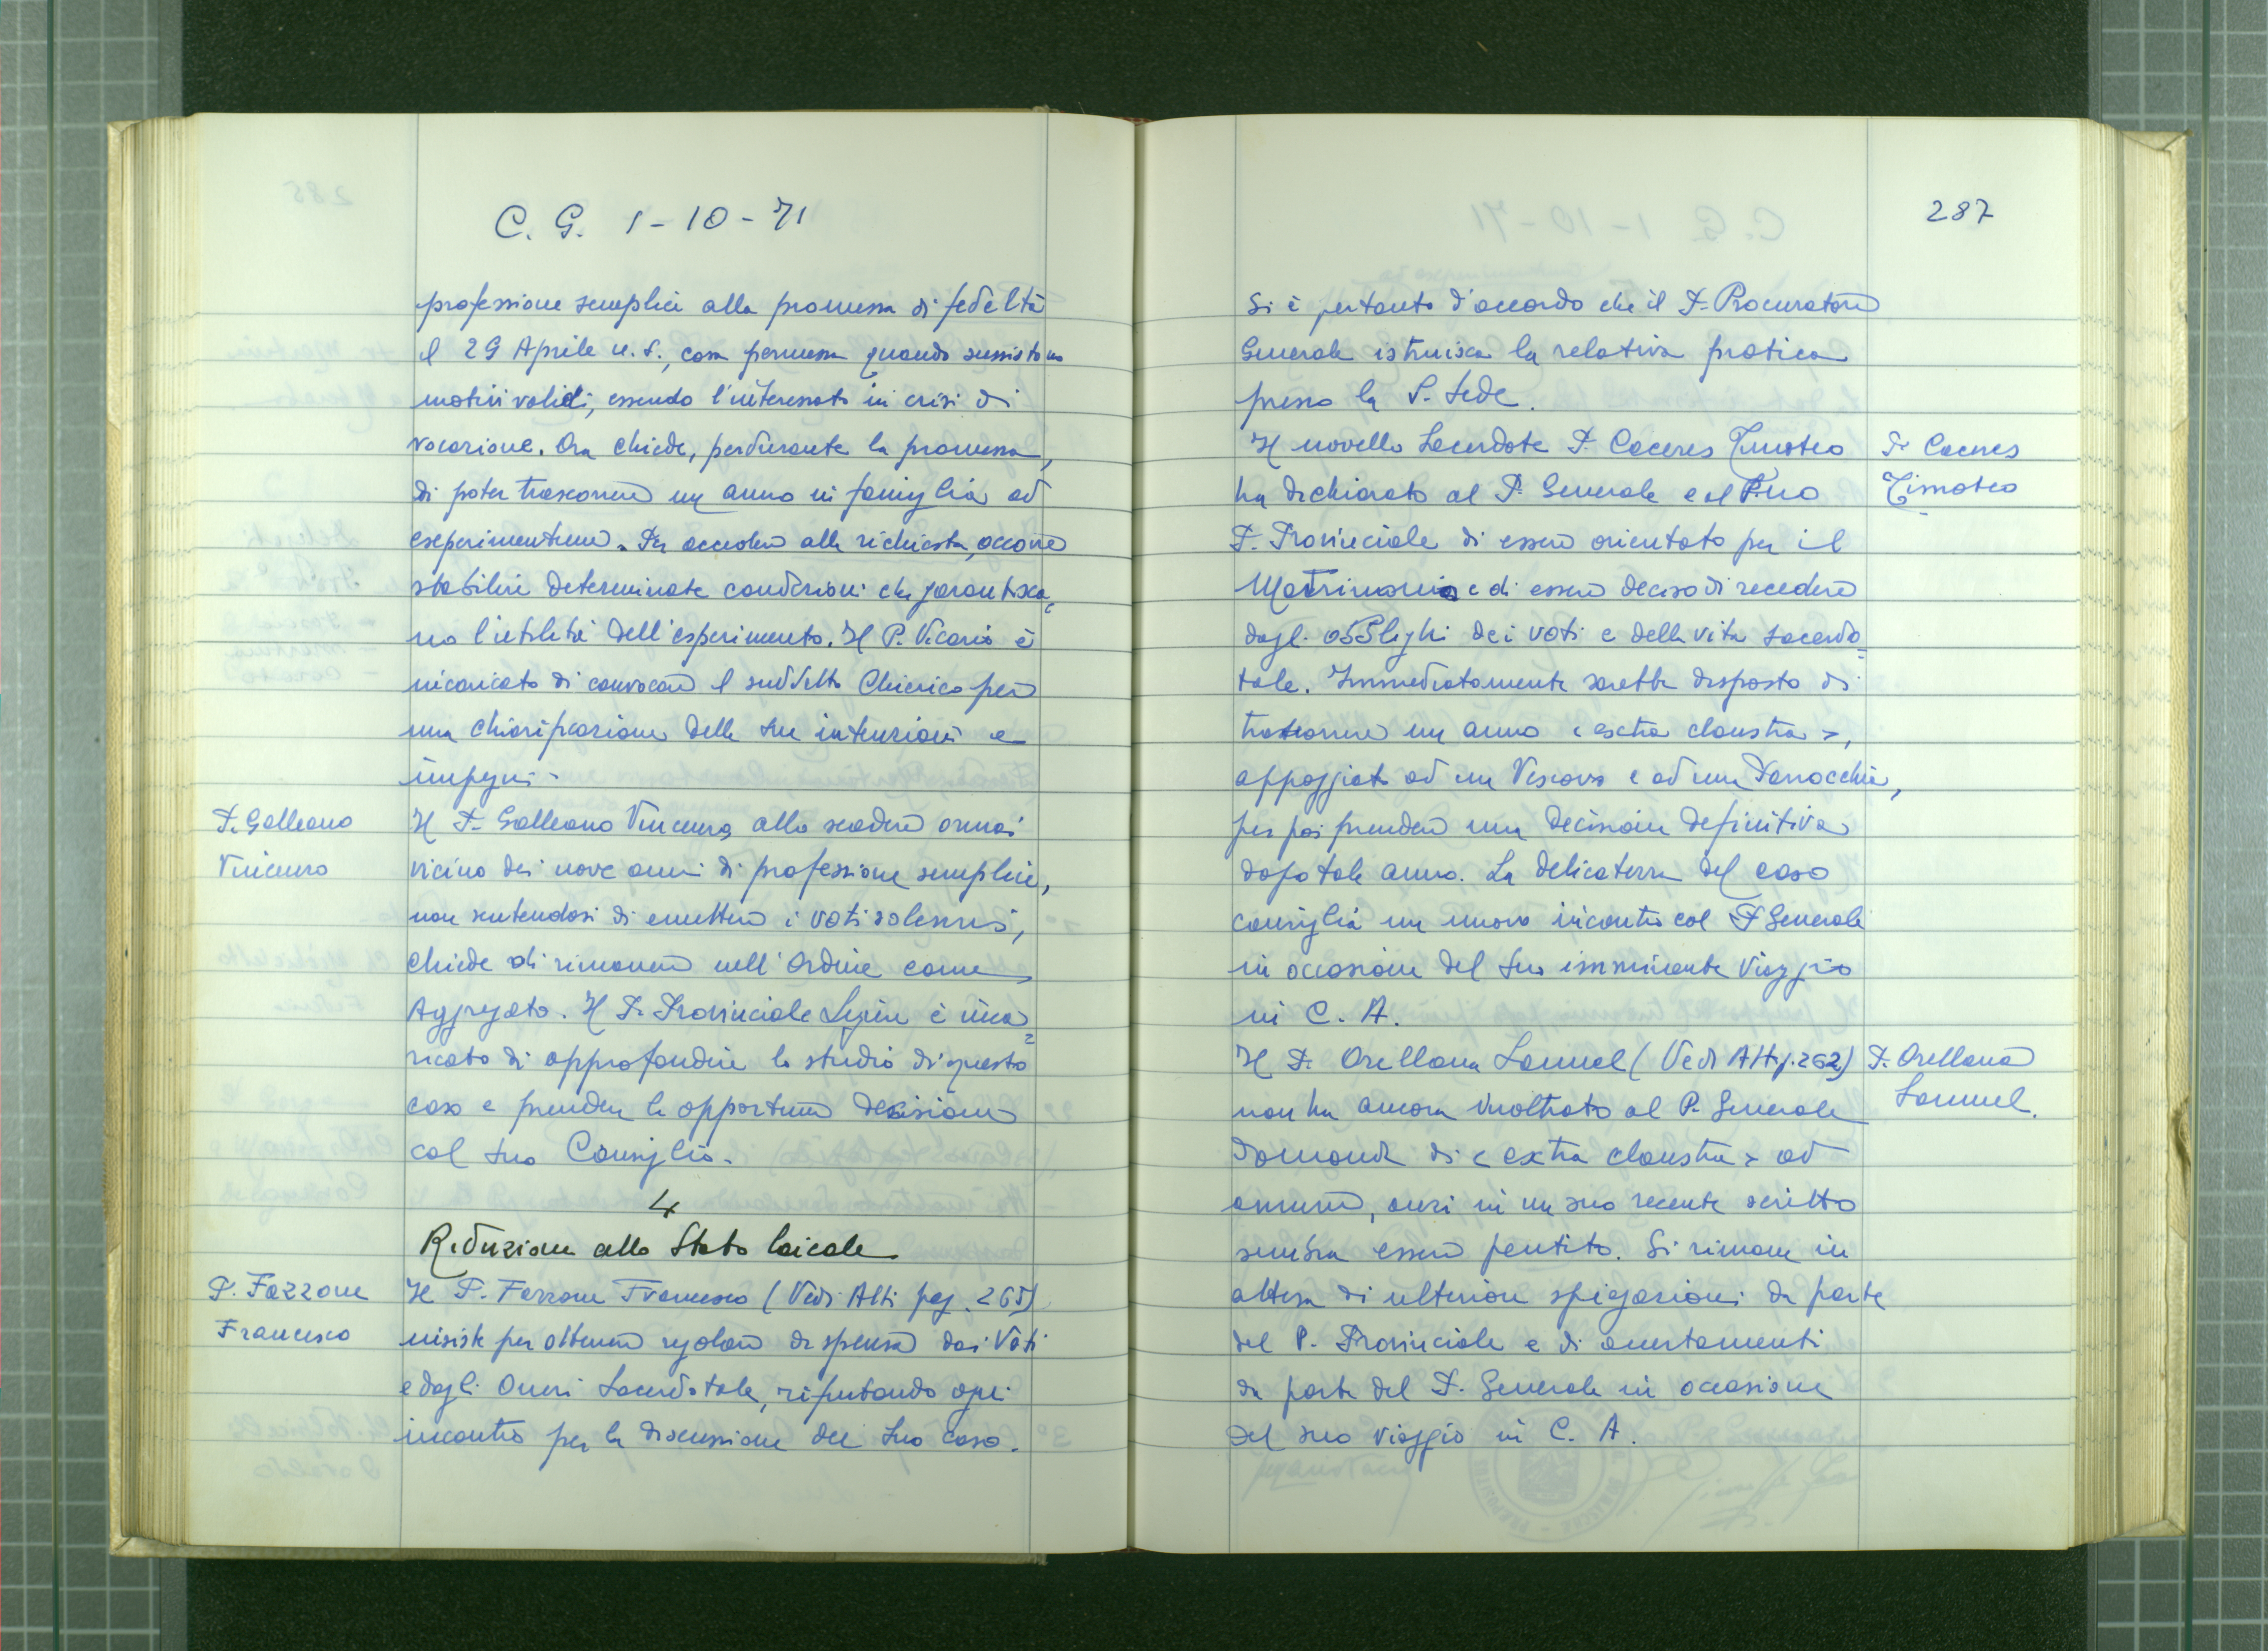 C. G. 1-10-71
professione semplice alla promessa di fedeltà
il 29 Aprile u.s., cosa permessa quando sussistono
motivi validi, essendo l'interessato in crisi di
vocazione. Ora chiede, perdurante la promessa,
di poter trascorrere un anno in famiglia ad
experimentum. Per accedere alla richiesta, occorre
stabilire determinate condizioni che garantisca=
no l'utilità dell'esperimento. Il P. Vicario è
incaricato di convocare il suddetto Chierico per
una chiarificazione delle sue intenzioni e
impegni.
P. Galleano
Vincenzo
Il P. Galleano Vincenzo, allo scadere ormai
vicino dei nove anni di professione semplice,
non sentendosi di emettere i voti solenni,
chiede di rimanere nell'Ordine come
Aggregato. Il P. Provinciale Ligure è inca=
ricato di approfondire lo studio di questo
caso e prendere le opportune decisioni
col suo Consiglio.
4
Riduzione allo Stato laicale
P. Fazzone
Francesco
Il P. Fazzone Francesco (Vedi Atti pag. 265)
insiste per ottenere regolare dispensa dai Voti
e dagli Oneri Sacerdotale, rifiutando ogni
incontro per la discussione del suo caso.
287
Si è pertanto d'accordo che il P. Procuratore
Generale istruisca la relativa pratica
presso la S. Sede.
Il novello Sacerdote P. Caceres Timoteo
P. Caceres
Timoteo
ha dichiarato al P. Generale e al
P. Provinciale di essere orientato per il
Matrimonio e di essere deciso di recedere
dagli obblighi dei voti e della vita sacerdo=
tale. Immediatamente sarebbe disposto di
trascorrere un anno < extra claustra >,
appoggiato ad un Vescovo e ad una Parrocchia,
per poi prendere una decisione definitiva
dopo tale anno. La delicatezza del caso
consiglia un nuovo incontro col P. Generale
in occasione del suo imminente viaggio
in C. A.
Il P. Orellana Samuel (Vedi Atti p. 262)
P. Orellana
Samuel.
non ha ancora inoltrato al P. Generale
domanda di < extra claustra > ad
annum, anzi in un suo recente scritto
sembra essere pentito. Si rimane in
attesa di ulteriori spiegazioni da parte
del P. Provinciale e di accertamenti
da parte del P. Generale in occasione
del suo viaggio in C. A.